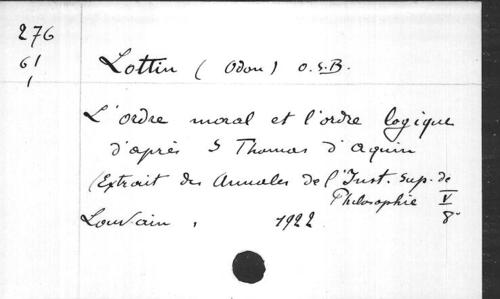 276
61
1
Lottin (Odon) O.S.B.
L'ordre moral et l'ordre logique
d'après S Thomas d'Aquin
(Extrait des Annales de l'Inst. Sup. de
Philosophie V
Louvain, 1922 8°